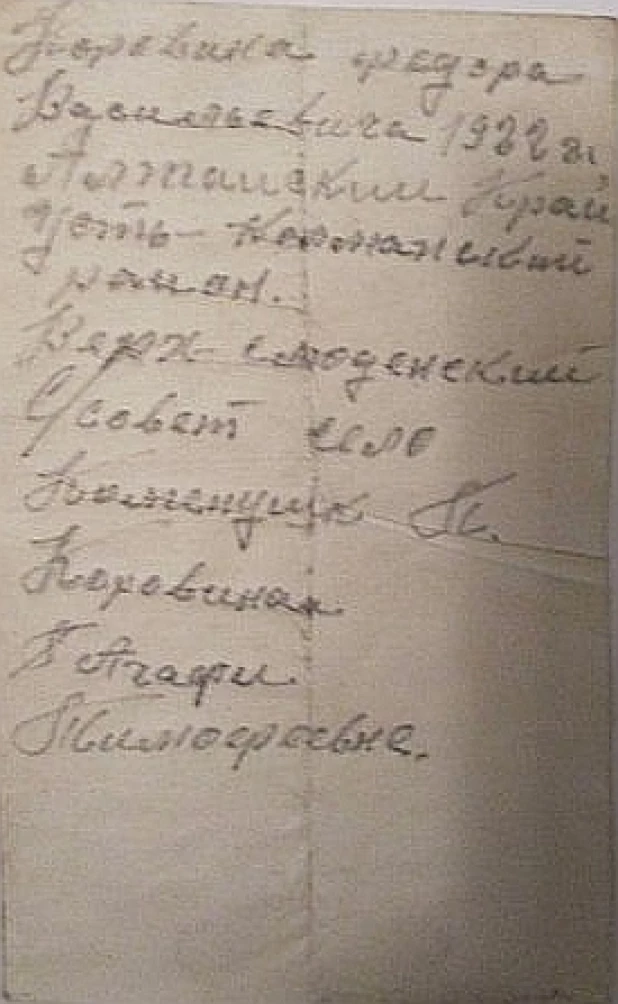 Коровина федора
Васильевича 1922 г.
Алтайский Край
Усть-Колманский
район.
Верх-слюденский
С/совет село
Каменушк К.
Коровиной
Агафи
Тимофеевне.